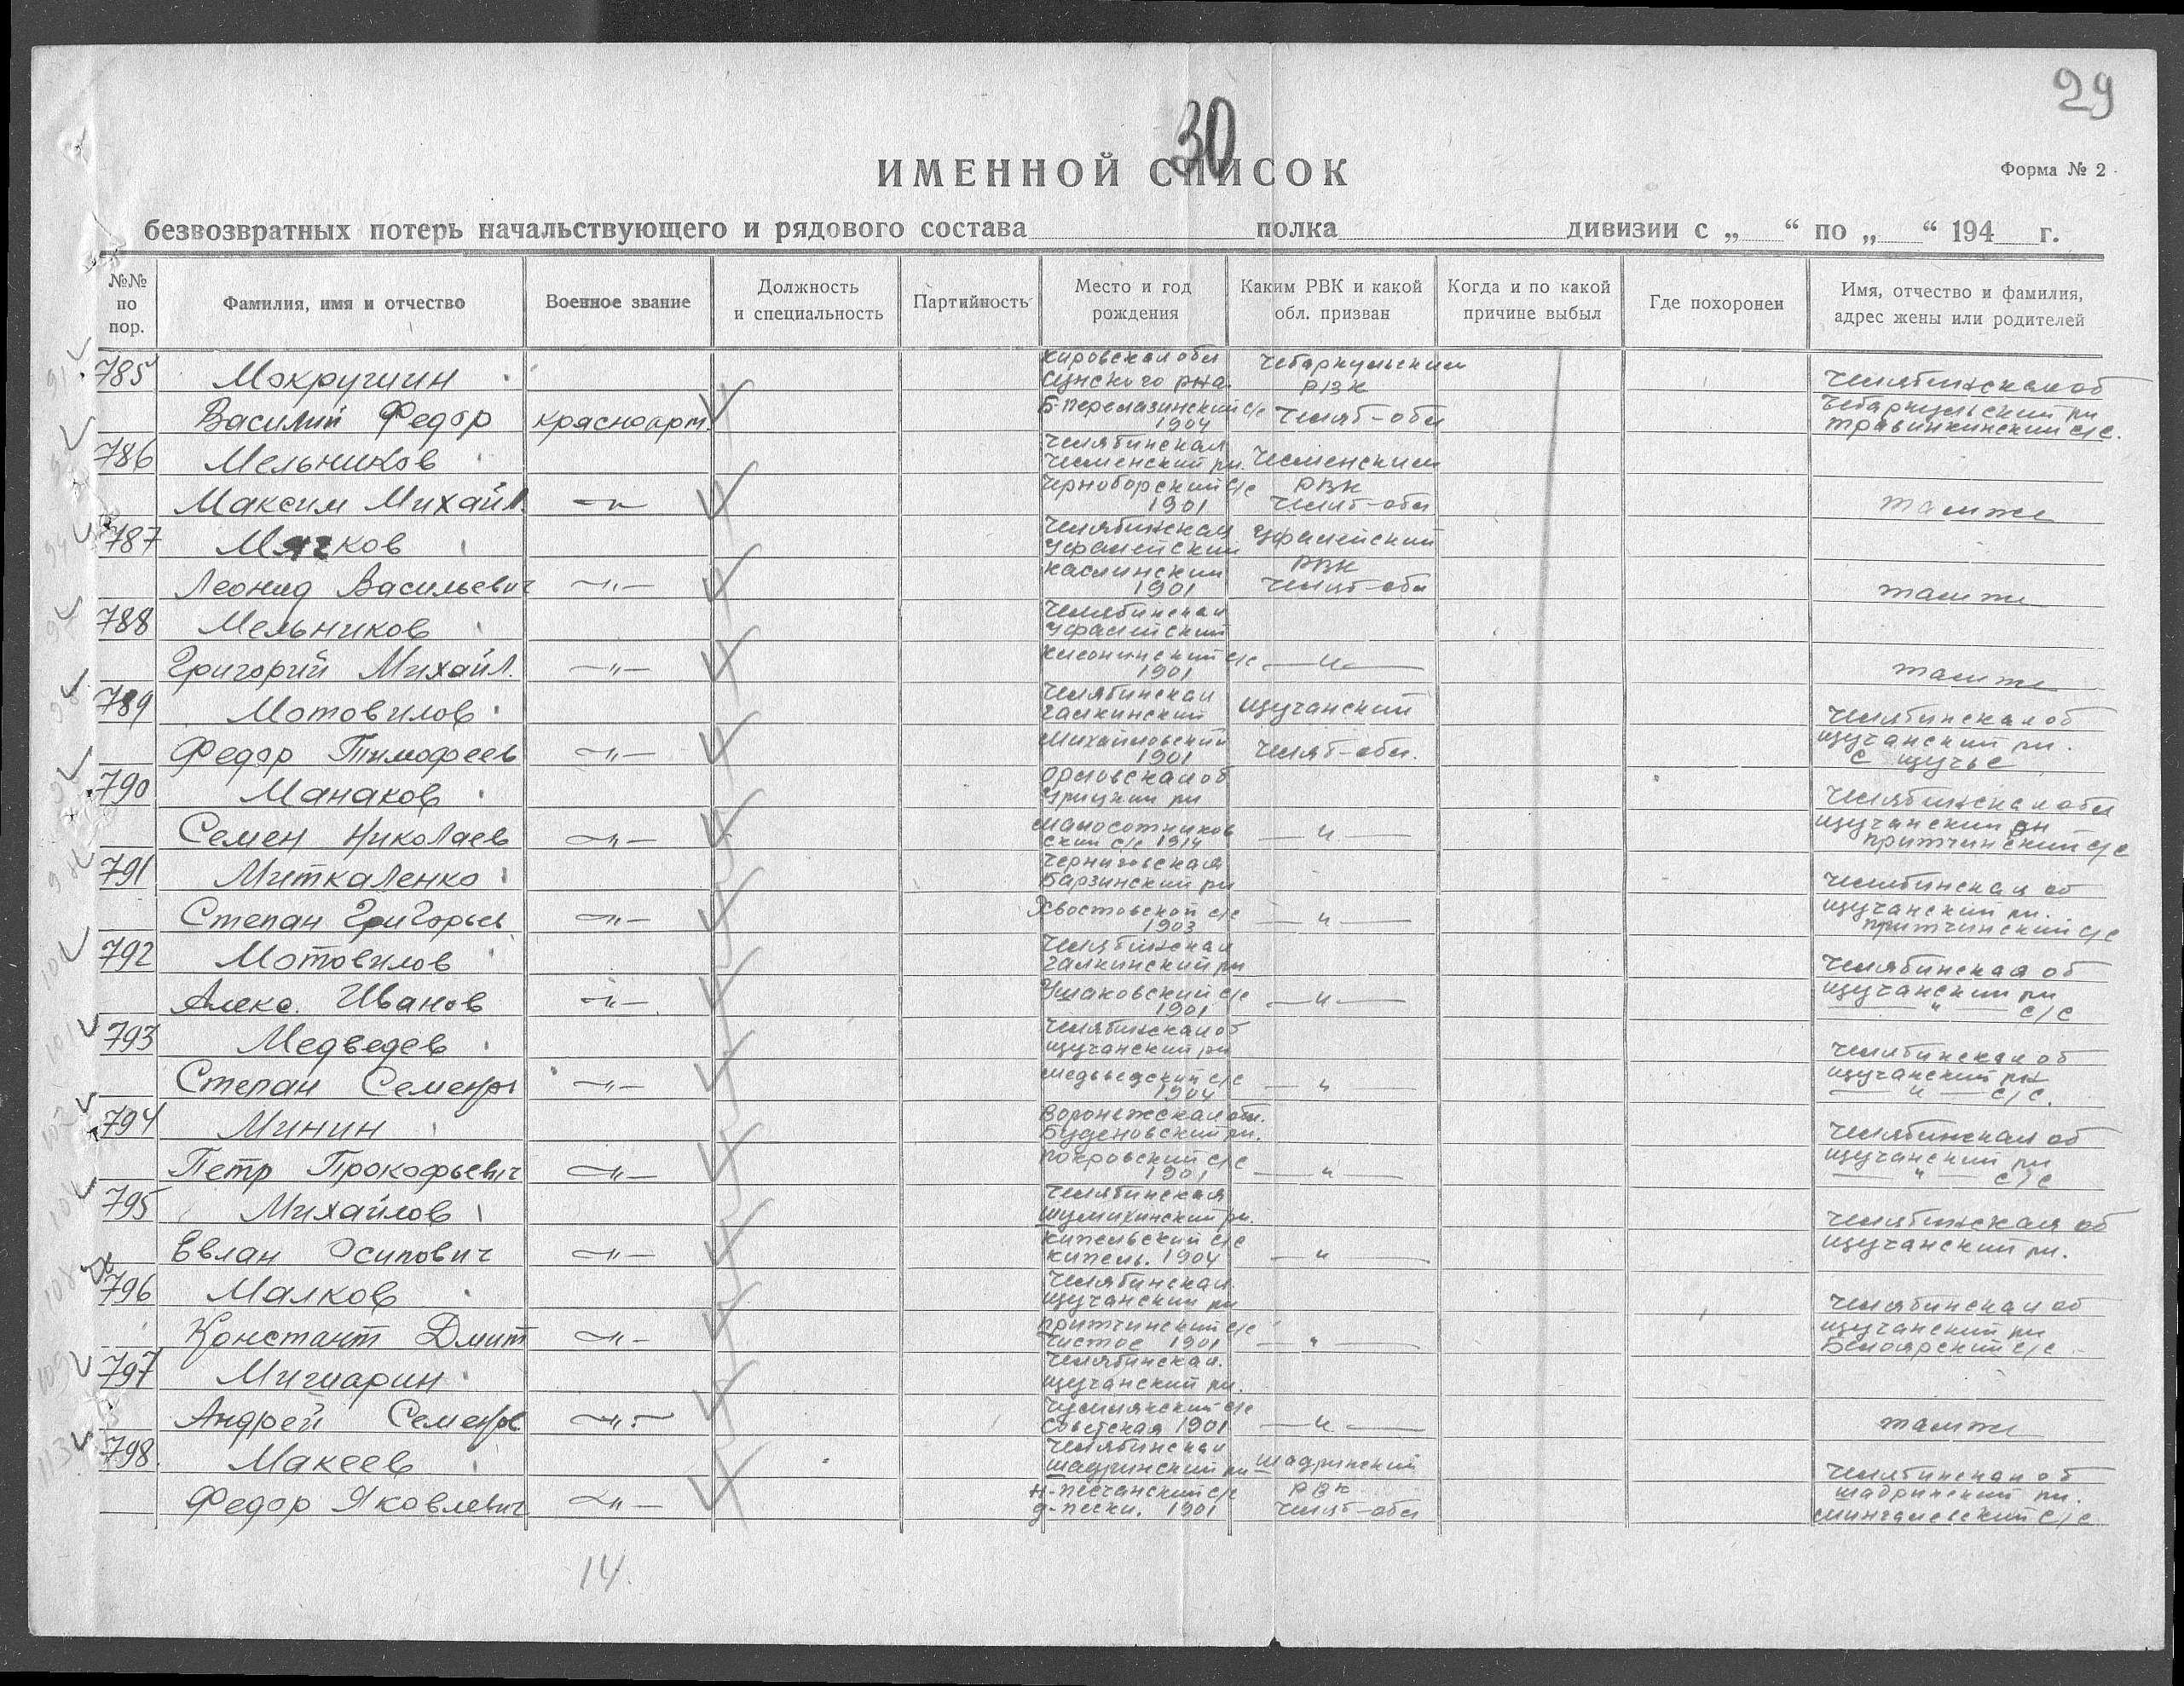 29
30
ИМЕННОЙ СПИСОК
Форма № 2
безвозвратных потерь начальствующего и рядового состава полка дивизии с „ “ по „ “ 194 г.
№№ по пор.
Фамилия, имя и отчество
Военное звание
Должность и специальность
Партийность
Место и год рождения
Каким РВК и какой обл. призван
Когда и по какой причине выбыл
Где похоронен
Имя, отчество и фамилия, адрес жены или родителей
785 Мокрушин Кировская обл Чебаркульский
Сунского рна. РВК Челябинская об
Василий Федор красноарм. Б-Перелазинский с/с 1904 Челяб-обл Чебаркульский рн Травинкинский с/с.
786 Мельников Челябинская Чесменский рн. Чесменский
Максим Михайл. —"— Черноборский с/с 1901 РВК Челяб-обл там же
787 Мягков Челябинская Уфалейский Уфалейский
Леонид Васильевич —"— Каслинский 1901 РВК Челяб-обл там же
788 Мельников Челябинская Уфалейский
Григорий Михайл. —"— 1901 —"— там же
789 Мотовилов Челябинская Галкинский Щучанский Челябинская об
Федор Тимофеев —"— Михайловский 1901 Челяб-обл. Щучанский рн. с Щучье
790 Манаков Орловская об Урицкий рн Челябинская обл
Семен Николаев —"— Малосотников ский с/с 1914 —"— Щучанский рн Притчинский с/с
791 Миткаленко Черниговская Барзинский рн Челябинская об
Степан Григорьев —"— Хвостовской с/с 1903 —"— Щучанский рн. Притчинский с/с
792 Мотовилов Челябинская Галкинский рн Челябинская об
Алекс. Иванов —"— Ушаковский с/с 1901 —"— Щучанский рн —"— с/с
793 Медведев Челябинская об Щучанский рн Челябинская об
Степан Семенов —"— Медведский с/с 1904 —"— Щучанский рн —"— с/с.
794 Минин Воронежская обл. Буденовский рн. Челябинская об
Петр Прокофьевич —"— Покровский с/с 1901 —"— Щучанский рн —"— с/с
795 Михайлов Челябинская Шумихинский рн. Челябинская об
Евлан Осипович —"— Кипельский с/с Кипель. 1904 —"— Щучанский рн.
796 Малков Челябинская Щучанский рн Челябинская об
Константи Дмит —"— Притчинский с/с Чистое 1901 —"— Щучанский рн Белоярский с/с
797 Мишарин Челябинская. Щучанский рн.
Андрей Семенов —"— Чумлякский с/с Советская 1901 —"— там же
798. Макеев Челябинская Шадринский рн Шадринский Челябинская об
Федор Яковлевич —"— Н-Песчанский с/с д-Пески. 1901 РВК Челяб-обл Шадринский рн. с/с
14.